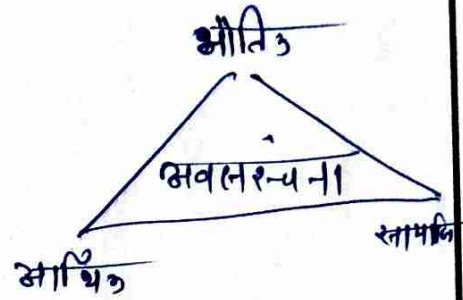 भौतिक
अवसंरचना
आर्थिक